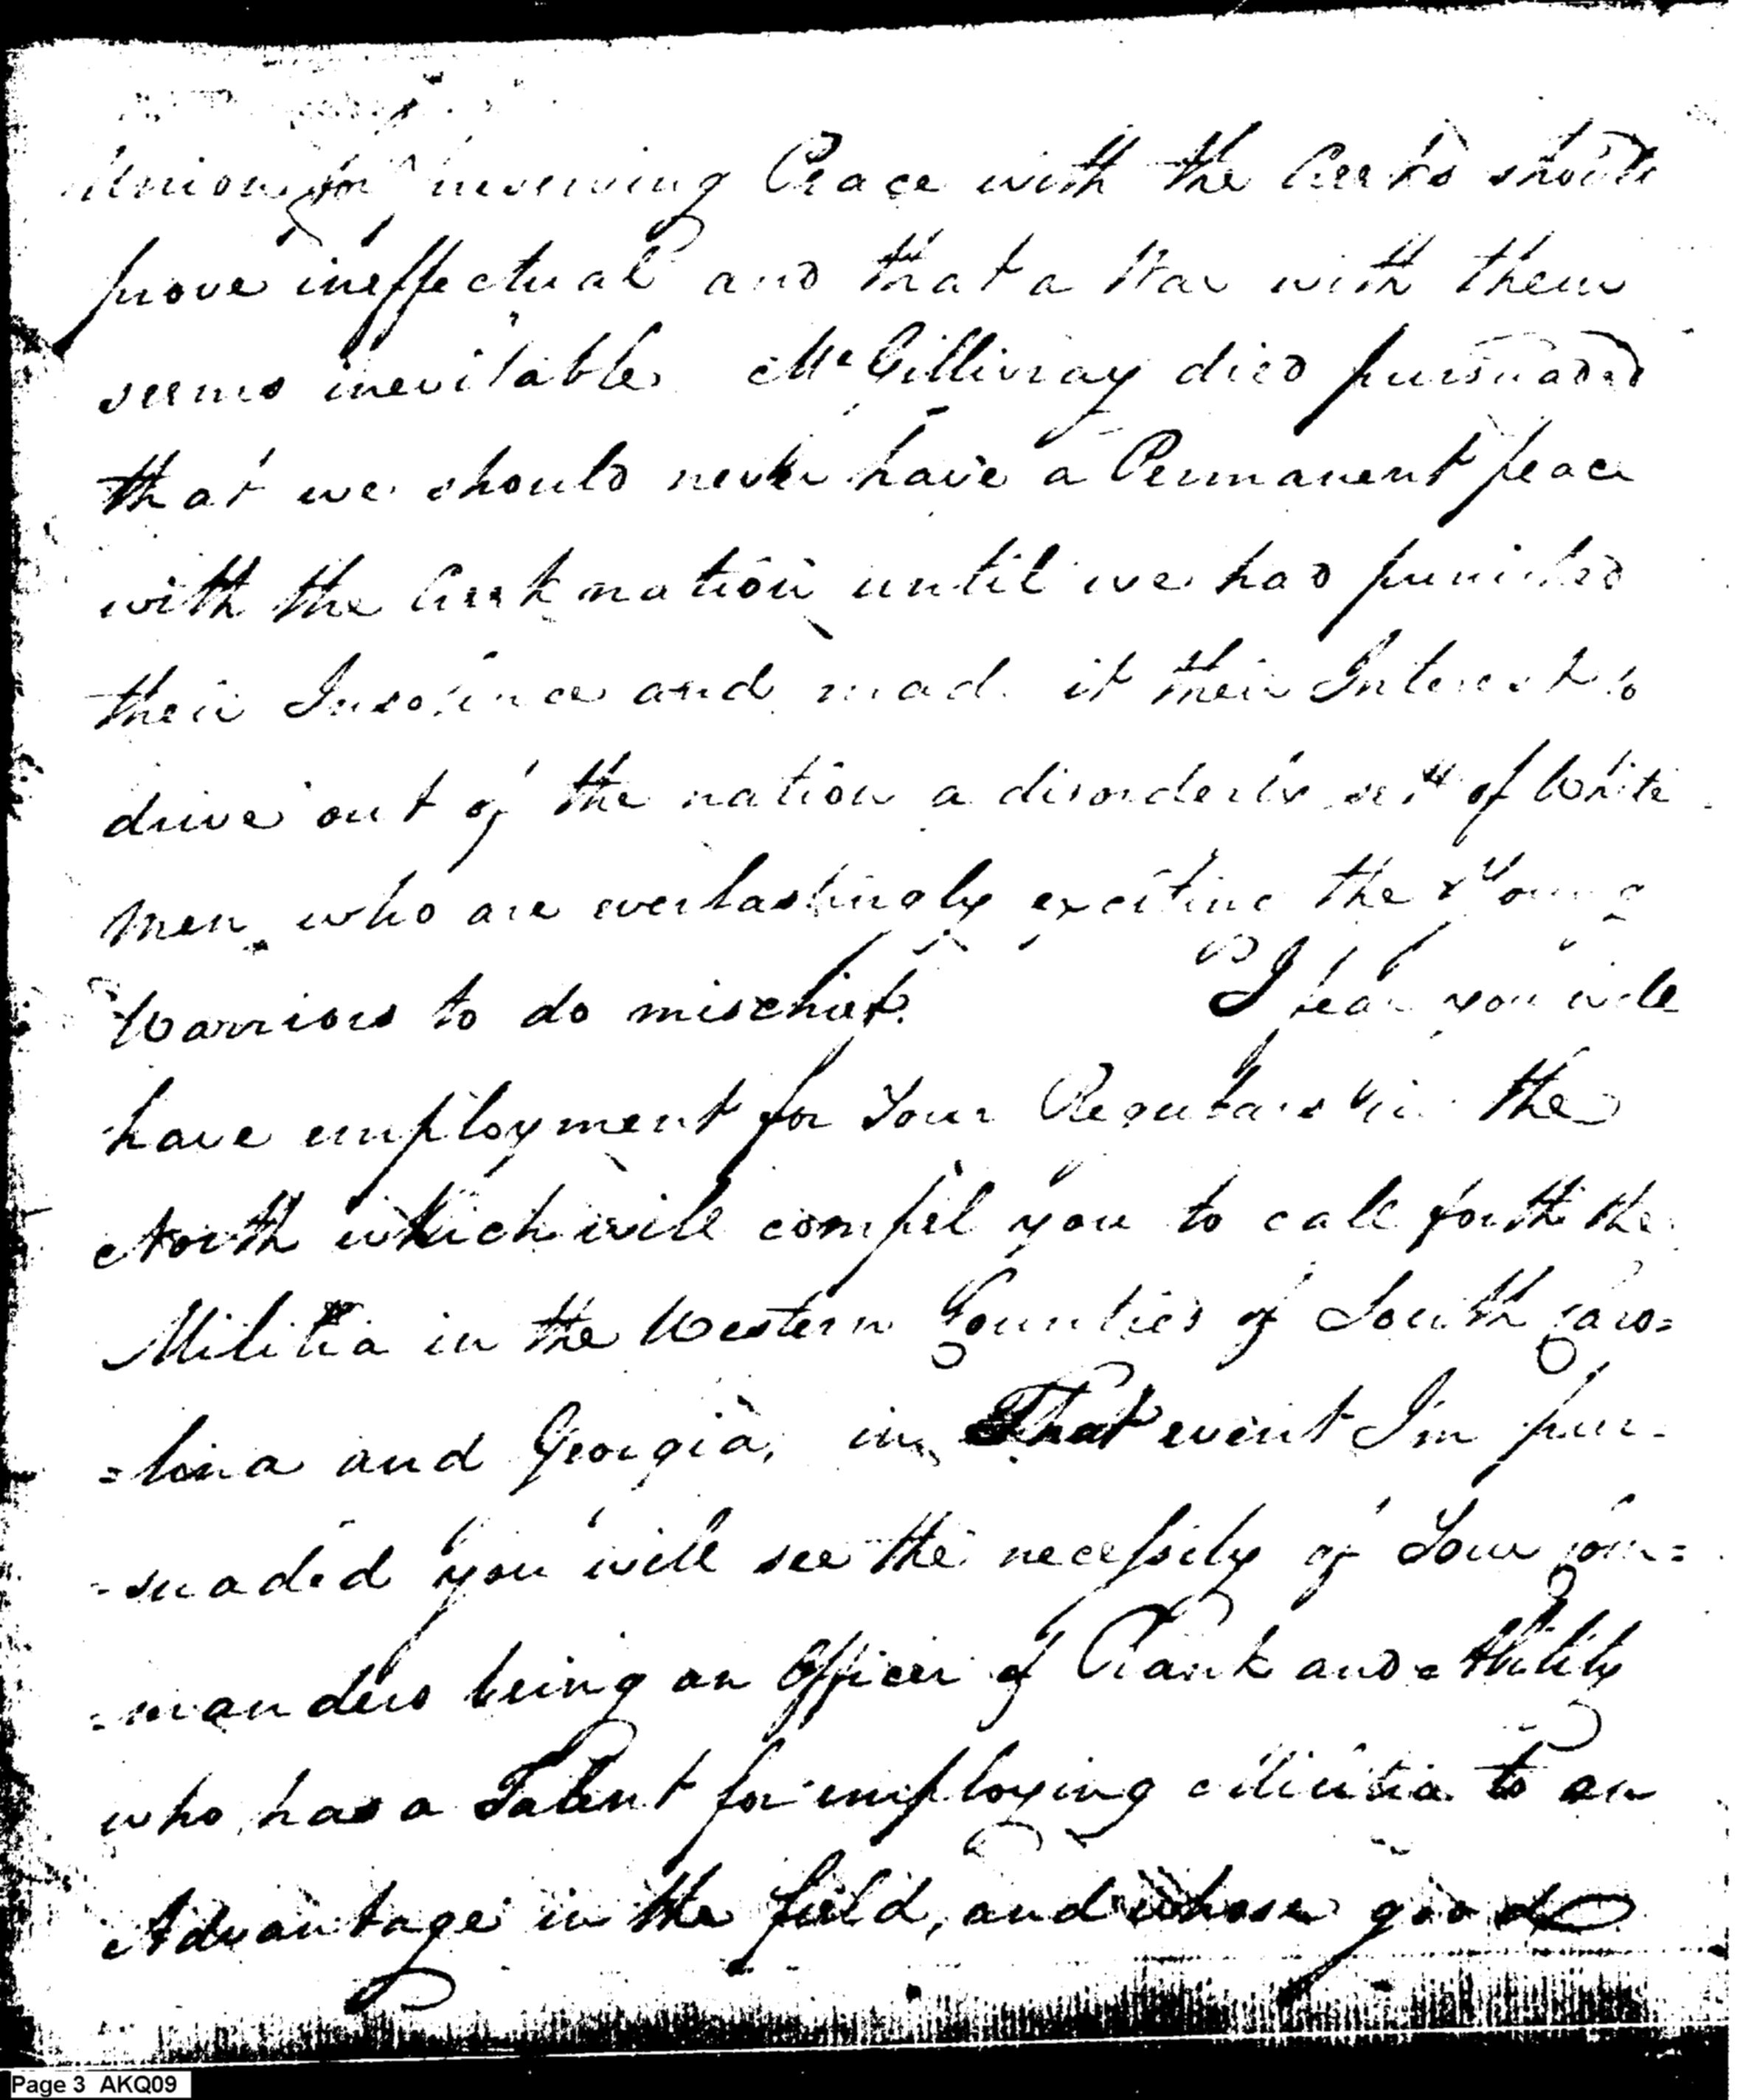 Union for preserving Peace with the Creeks should
prove ineffectual and that a War with them
seems inevitable McGillivray died pursuaded
that we should never have a Permanent peace
with the Creek nation until we had punished
their Insolence and made it their Interest to
drive out of the nation a disorderly sett of White
men who are everlastingly exciting the Young
Warriors to do mischief. I fear you will
have employment for Your Regulars in the
North which will compel you to call forth the
Militia in the Western Counties of South Caro=
=lina and Georgia, in That event I'm pur=
=suaded you will see the necessity of Your com=
=manders being an Officer of Rank and Ability
who has a Talent for employing Militia to an
Advantage in the field, and whose good
Page 3 AKQ09